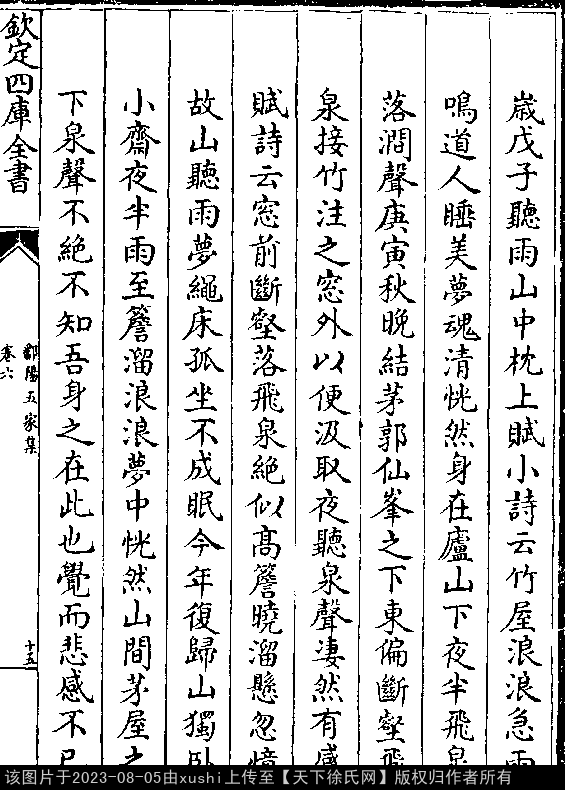 歳戊子聽雨山中枕上賦小詩云竹屋浪浪急雨
鳴道人睡美夢魂清恍然身在廬山下夜半飛泉
落澗聲庚寅秋晚結茅郭仙峯之下東偏斷壑飛
泉接竹注之窓外以便汲取夜聽泉聲凄然有感
賦詩云窓前斷壑落飛泉絶似髙簷曉溜懸忽憶
故山聽雨夢繩床孤坐不成眠今年復歸山獨卧
小齋夜半雨至簷溜浪浪夢中恍然山間茅屋之
下泉聲不絶不知吾身之在此也覺而悲感不已
欽定四庫全書
鄱陽五家集
卷六
十五
该图片于2023-08-05由xushi上传至【天下徐氏网】版权归作者所有